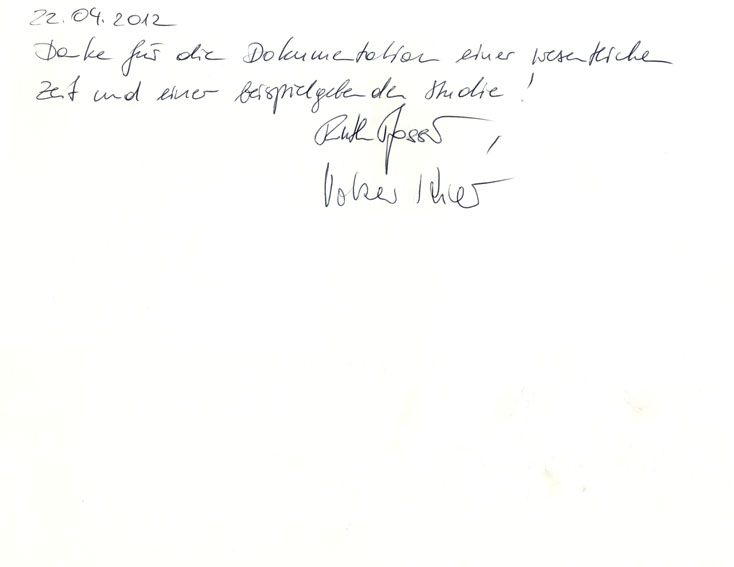 22.04.2012
Danke für die Dokumentation einer wesentlichen
Zeit und einer beispielgebenden Studie!
Ruth
Volker